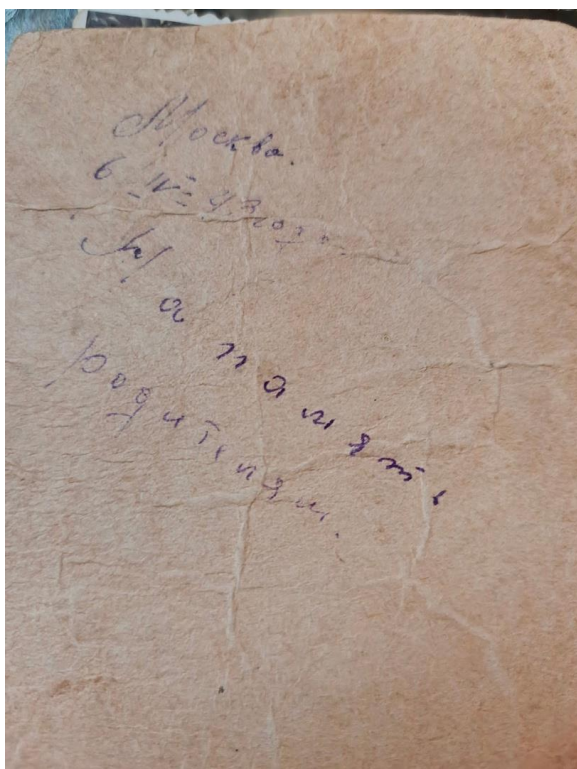 Москва.
6 IV 43 года
На память
родителям.